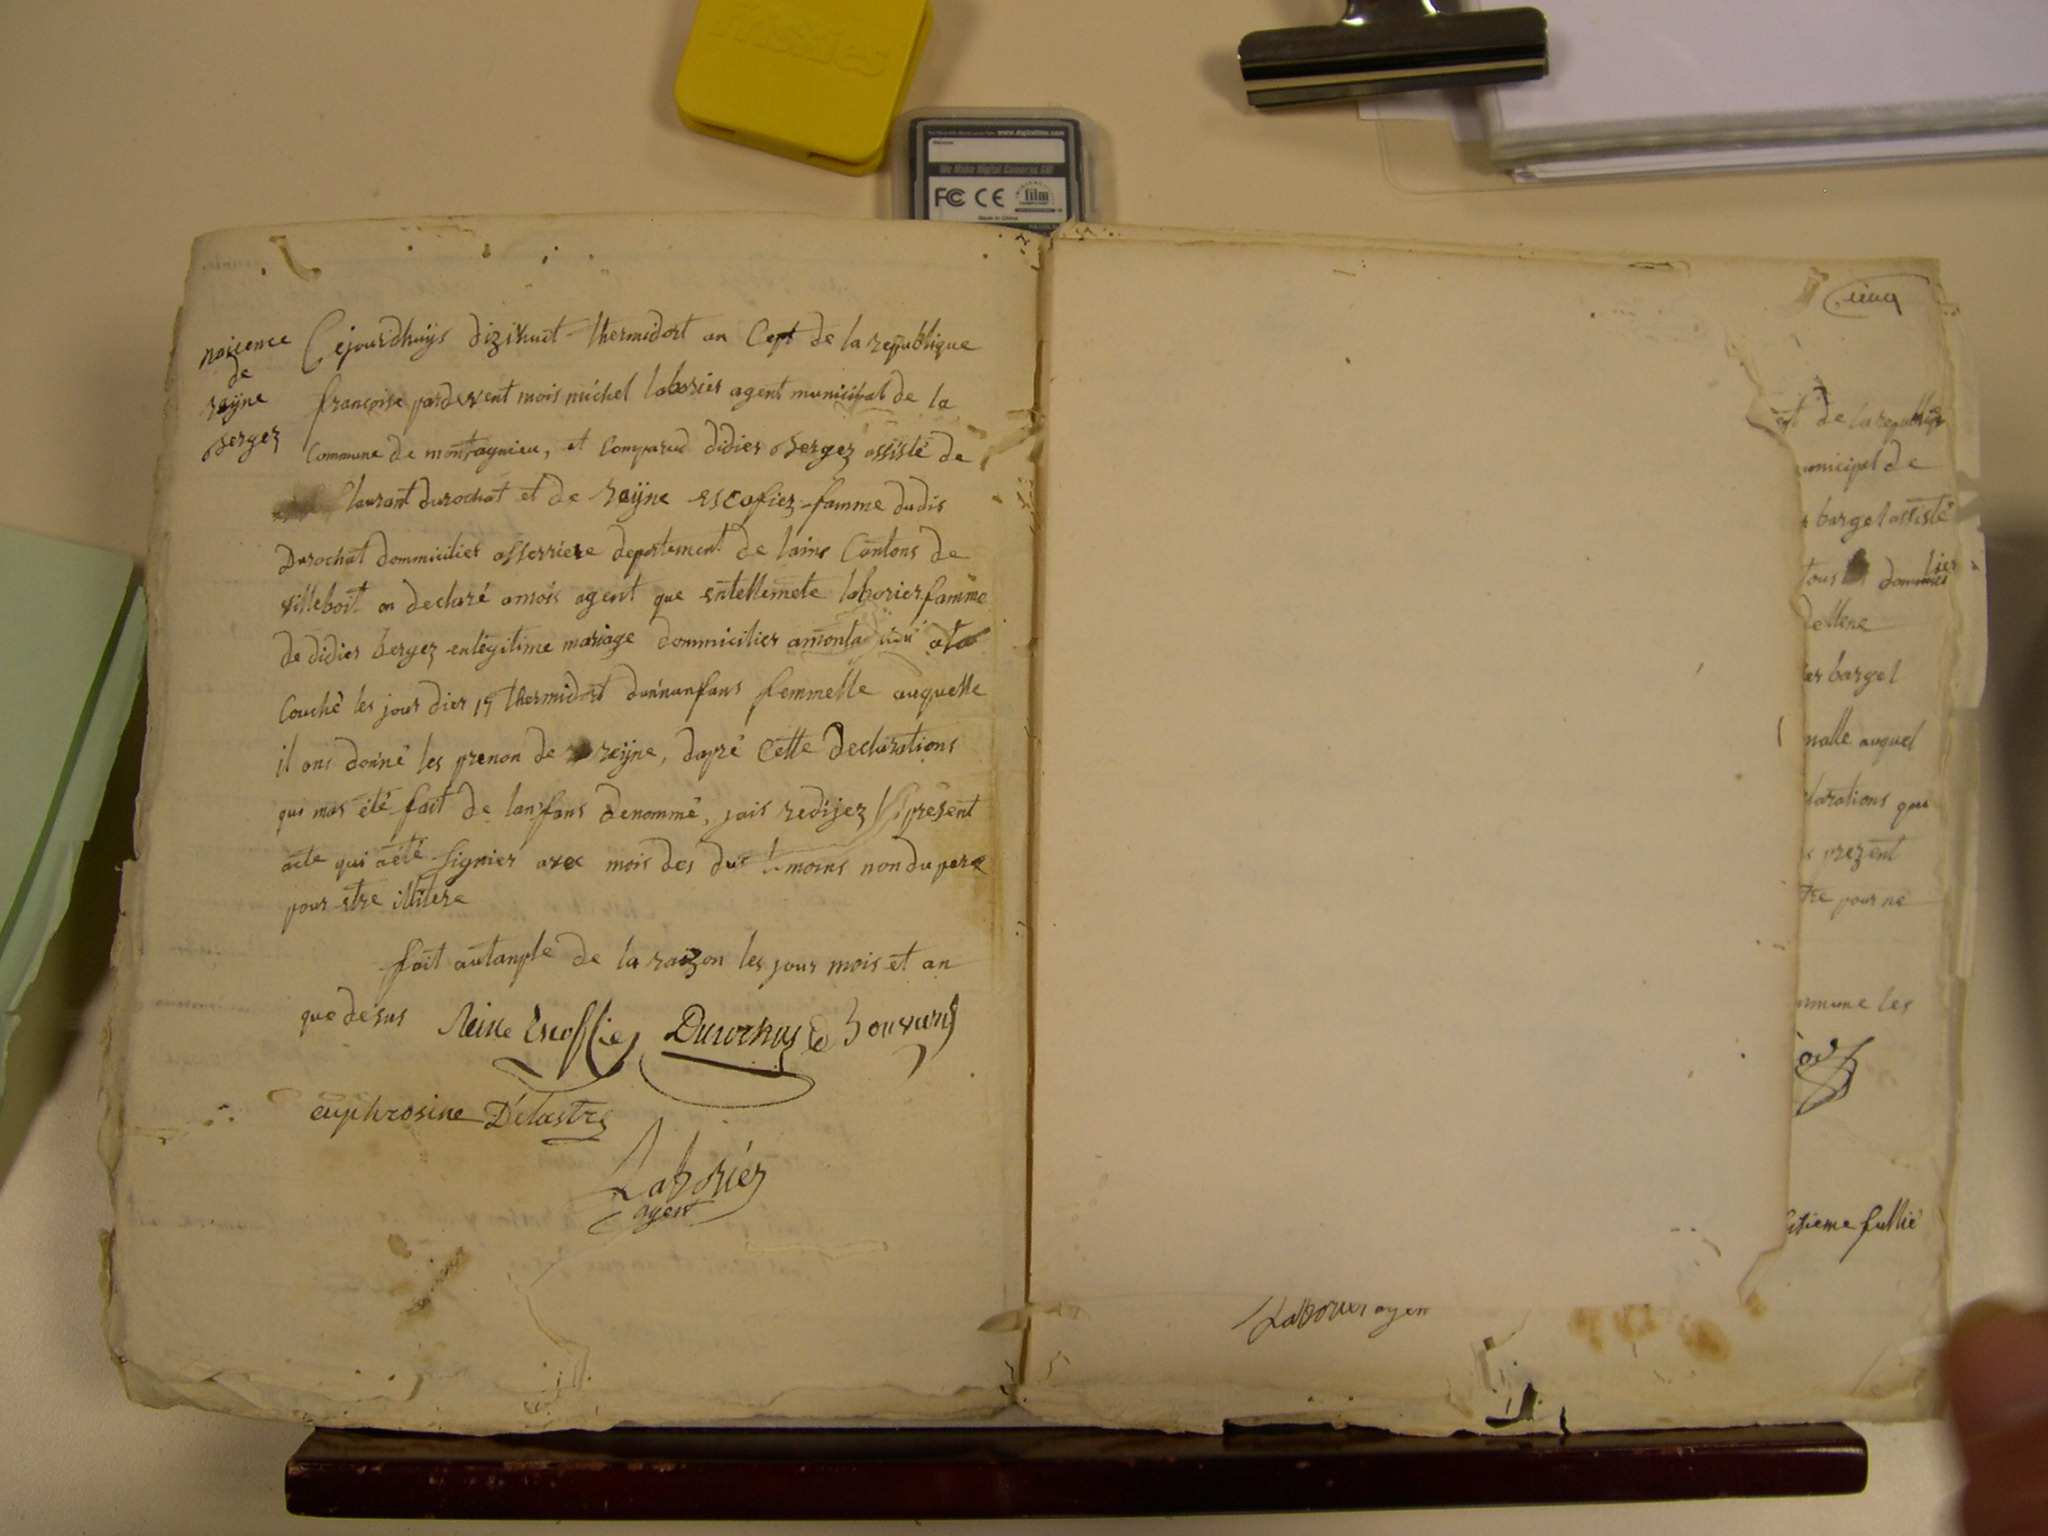 naisence
de
reÿne
Bergez
Cejourdhuÿs dizihuit thermidort an Cept de la republique
françoise pardevent mois michel laborier agent municipal de la
Commune de montagnieu, et Comparud didier Bergez assisté de
laurant durochat et de reÿne escofiez famme dudis
Durochat dommicilier asserriere departement de lains Cantons de
villeboit on declaré amois agent que entellemete laborier famme
de didier bergez en legitime mariage dommicilier amontagniu ata
Couché les jour dier 17 thermidort dun'nanfans femmelle auquelle
il ons donné les prenon de reÿne, dapré Cette declarations
qui mas été fait de lanfans denommé, jais redijez les présent
acte qui aété signier avec mois des dus temoins non du pere
pour etre illitere
fait autanple de la raizon les jour mois et an
que desus Reine Escoffier Durochas Bouvand
euphrosine Delastre
Laborier
agent
Cinq
et de la republique
municipal de
bargel assisté
tous dommicilier
dellene
ier bargel
malle auquel
clarations qui
s prezent
tre pour ne
ommune les
sitieme fullié
Laborier agen
Frisskies
www.digitalfilm.com
We Make Digital Cameras Sil
FC CE
film
Made in China